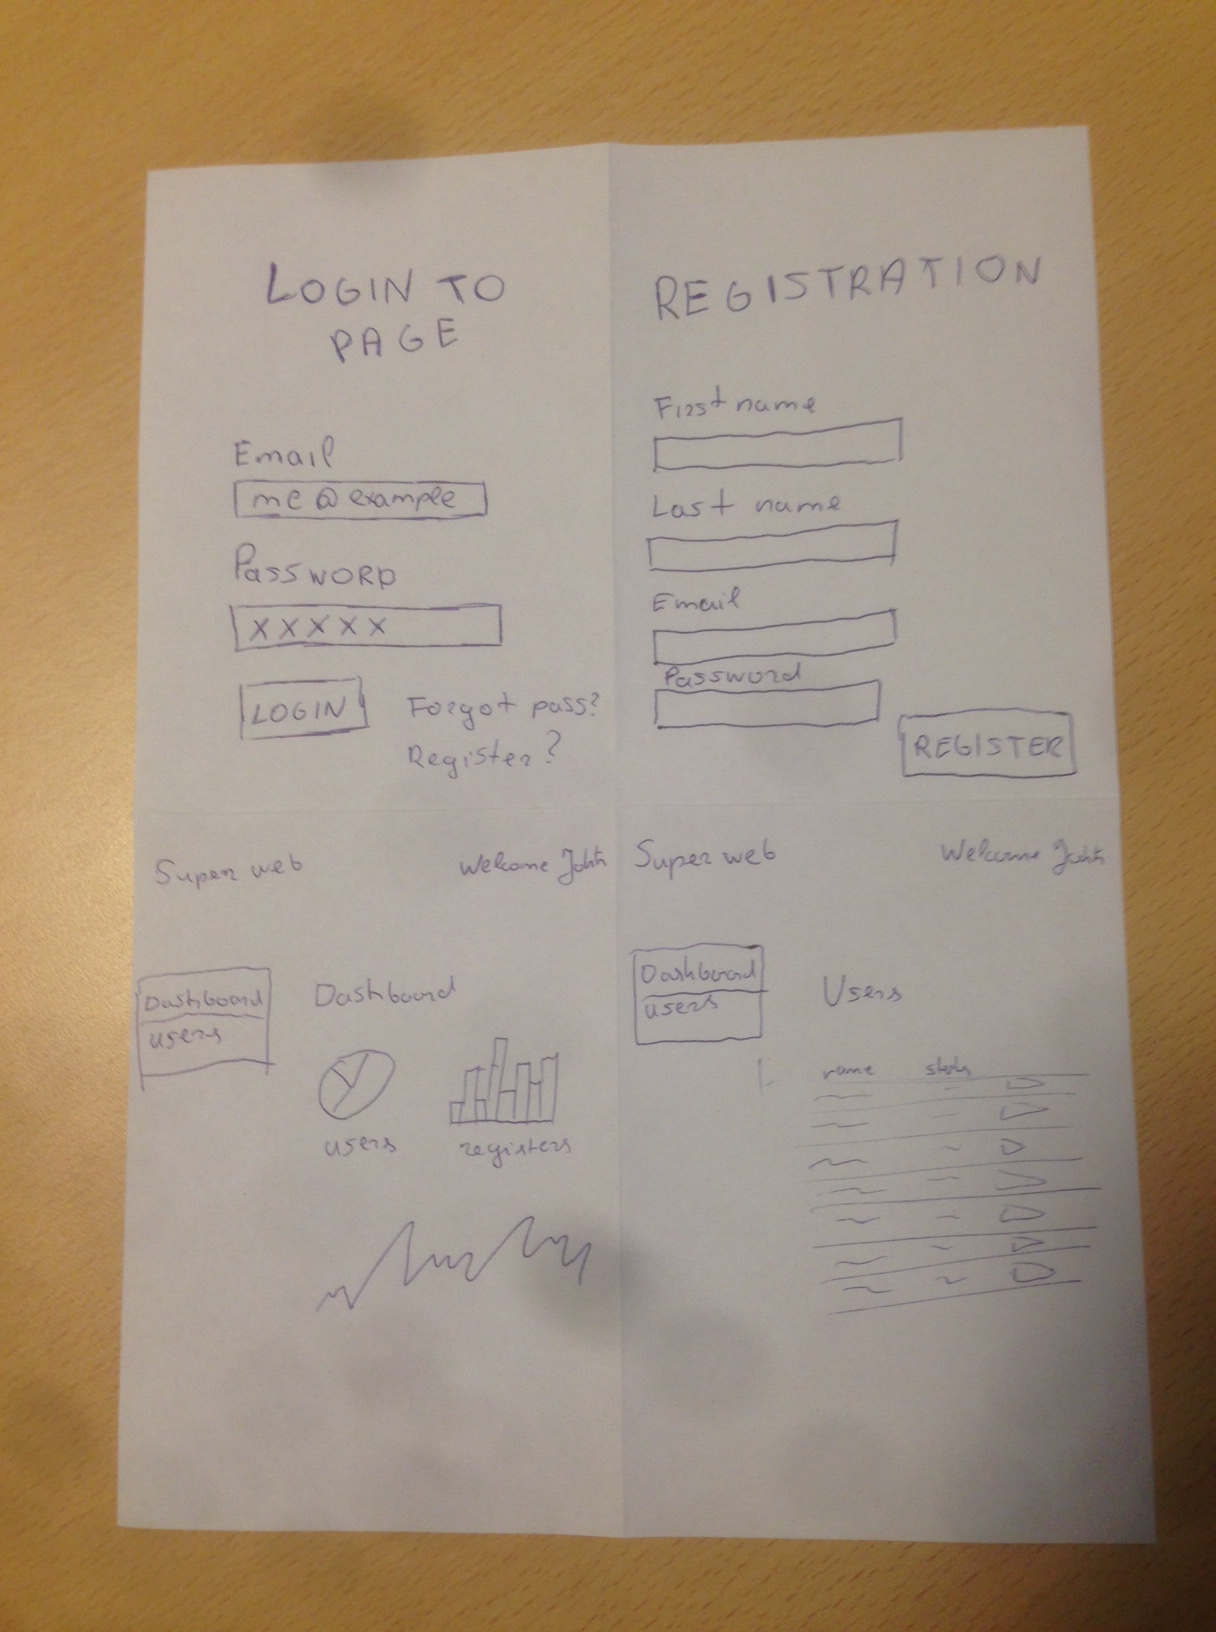 LOGIN TO
PAGE
Email
me@example
Password
XXXXX
LOGIN
Forgot pass?
Register?
REGISTRATION
First name
Last name
Email
Password
REGISTER
Super web
Welcome John
Dashboard
users
Dashboard
users
registers
Super web
Welcome John
Dashboard
users
Users
name